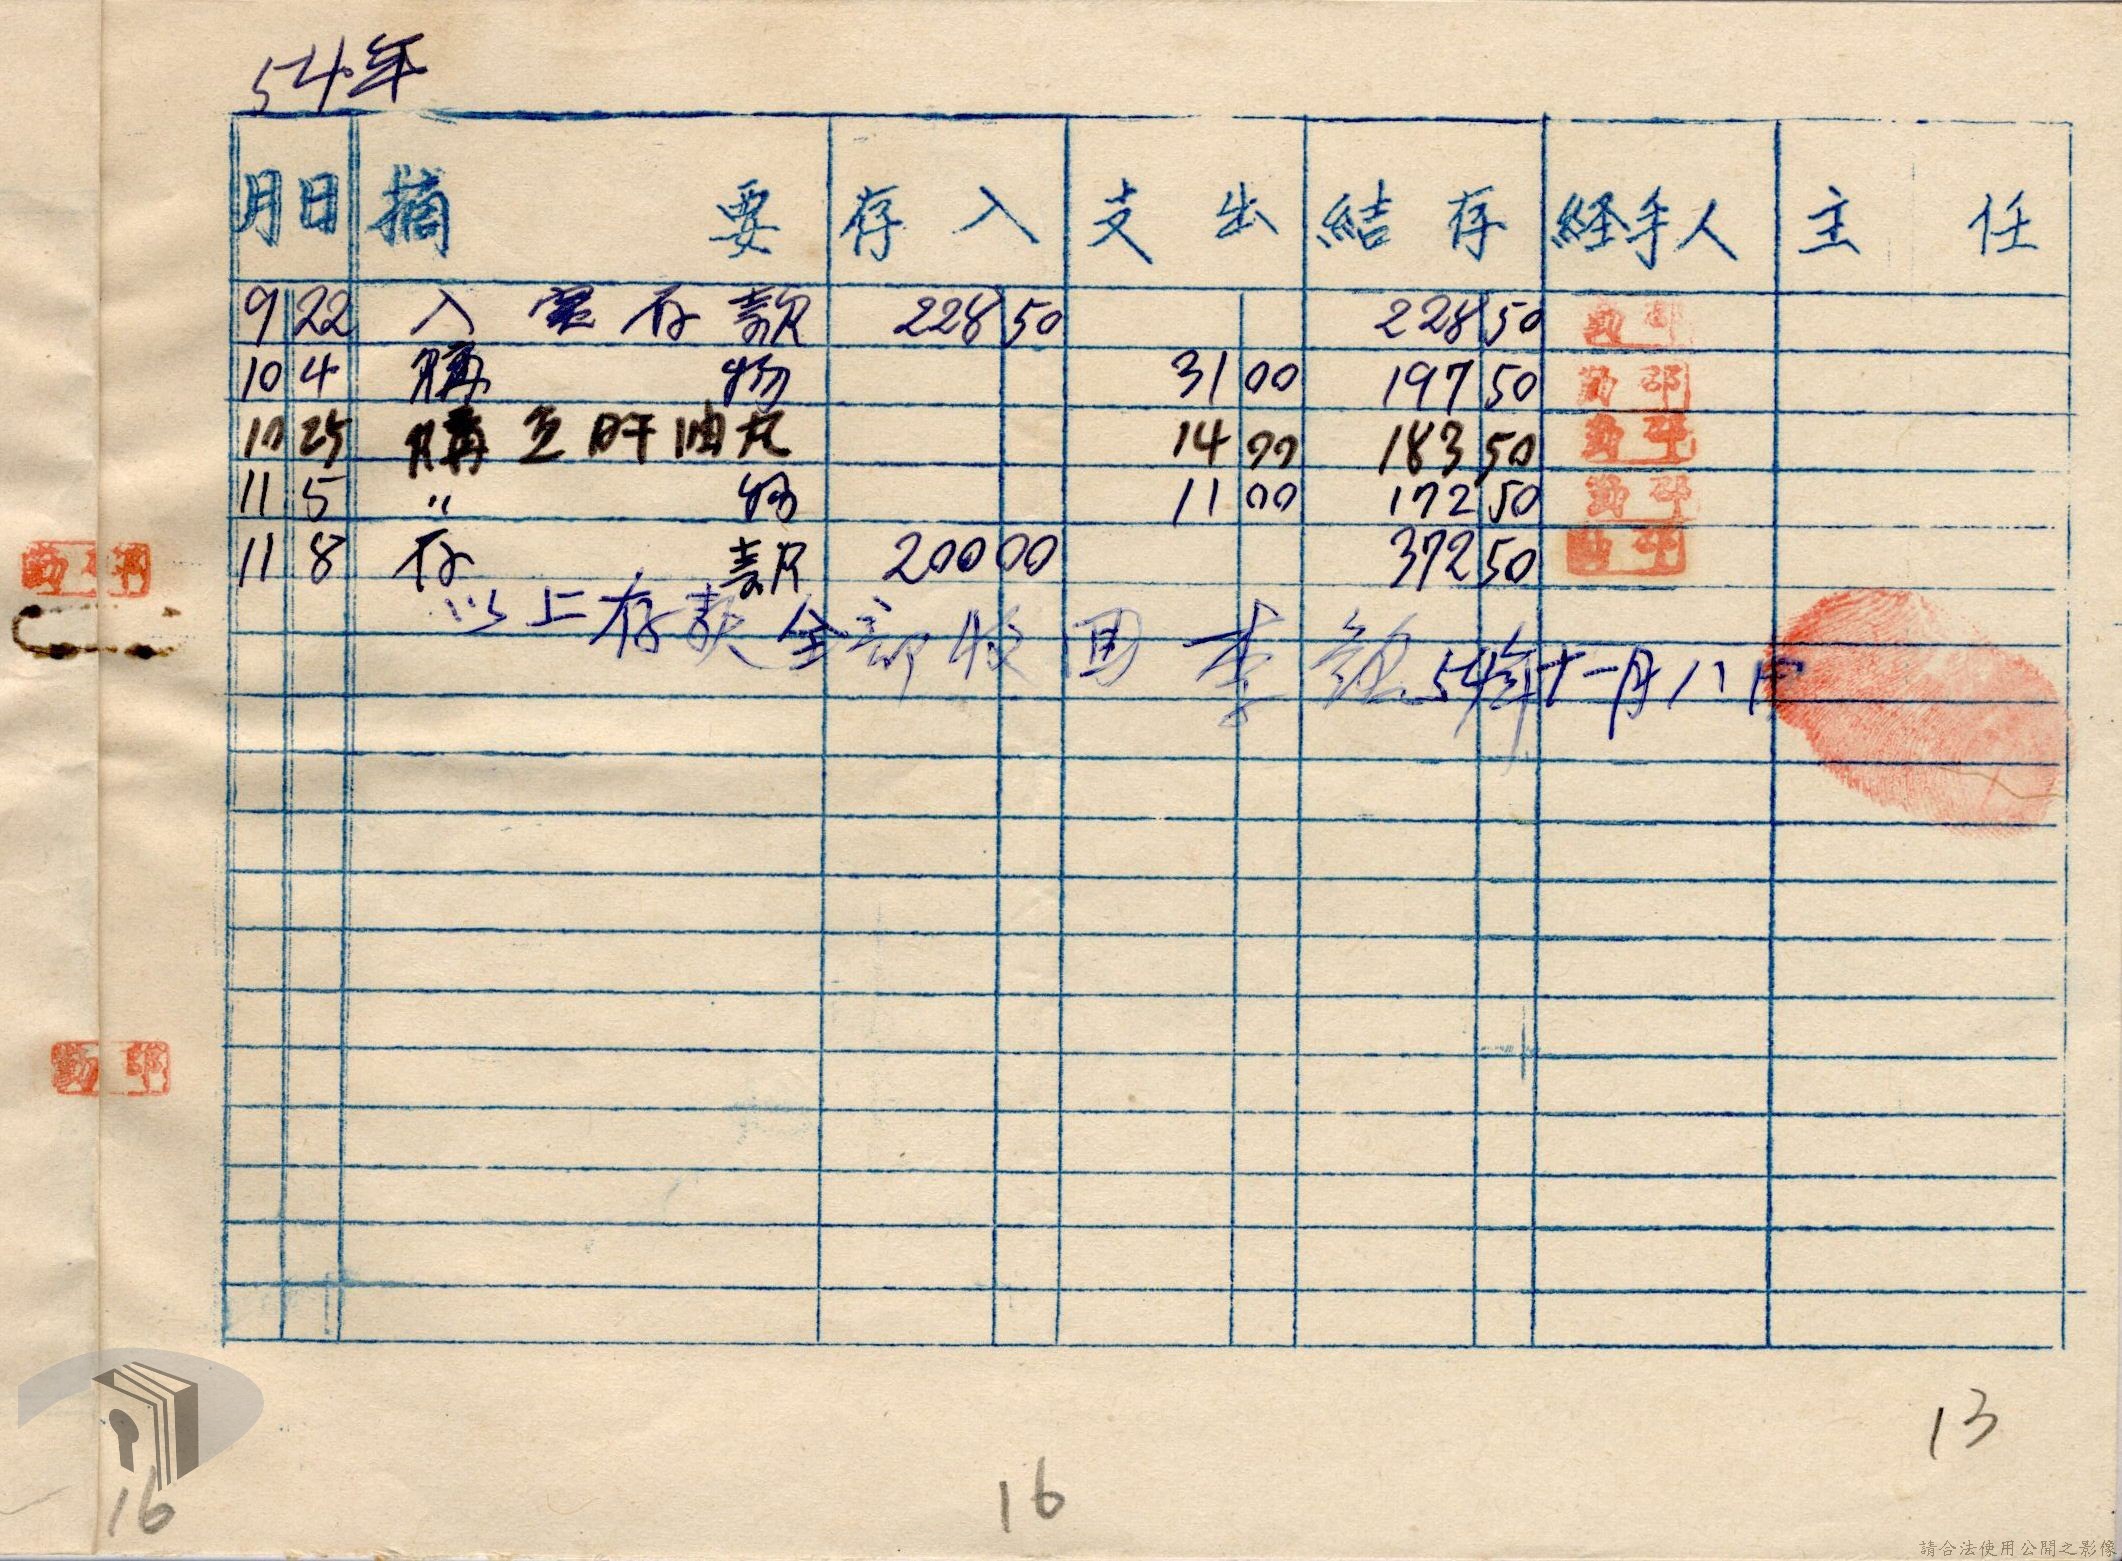 54年
月 日 摘要 存入 支出 結存 経手人 主任
9 22 入室存款 228 50 228 50 邵勤
10 4 購物 31 00 197 50 邵勤
10 25 購 肝油丸 14 00 183 50 邵勤
11 5 〃 物 11 00 172 50 邵勤
11 8 存款 200 00 372 50 邵勤
以上存款全部收回 李 54年十一月八日
邵勤
邵勤
13
16 16
請合法使用公開之影像